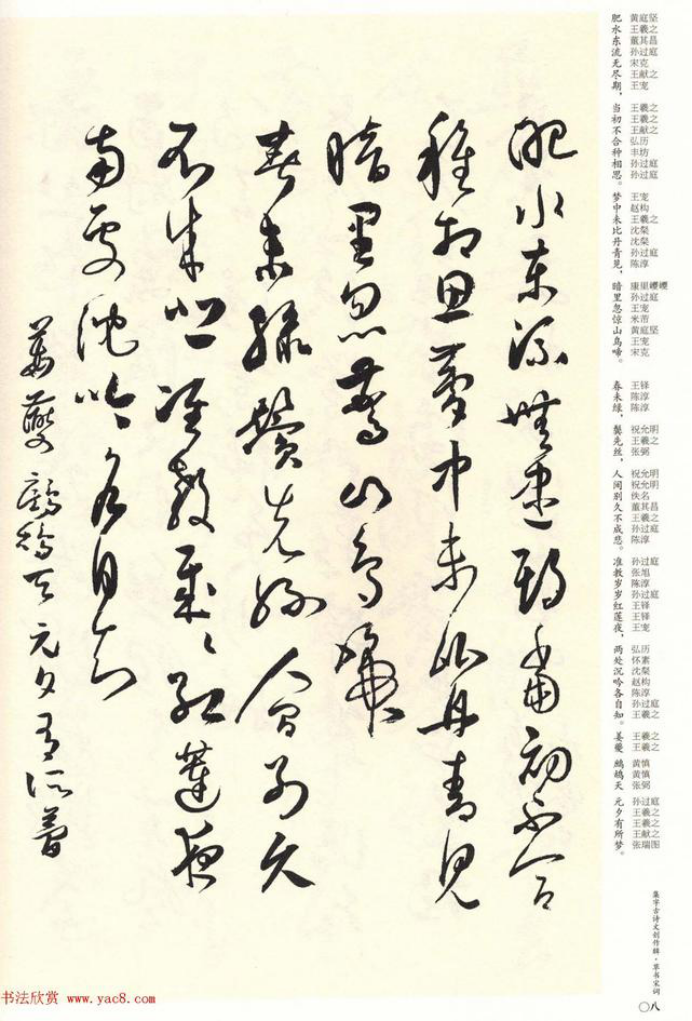 肥 黄庭坚
水 王羲之
东 董其昌
流 孙过庭
无 宋克
尽 王献之
期， 王宠
当 王羲之
初 王羲之
不 王献之
合 弘历
种 丰坊
相 孙过庭
思。 孙过庭
梦 王宠
中 赵构
未 王羲之
比 沈粲
丹 沈粲
青 孙过庭
见， 陈淳
暗 康里巎巎
里 孙过庭
忽 王宠
惊 米芾
山 黄庭坚
鸟 王宠
啼。 宋克
春 王铎
未 陈淳
绿， 陈淳
鬓 祝允明
先 王羲之
丝， 张弼
人 祝允明
间 祝允明
别 佚名
久 董其昌
不 王羲之
成 孙过庭
悲。 陈淳
准 孙过庭
教 张旭
岁 陈淳
岁 孙过庭
红 王铎
莲 王铎
夜， 王宠
两 弘历
处 怀素
沉 沈粲
吟 赵构
各 陈淳
自 孙过庭
知。 王羲之
姜 王羲之
夔 王羲之
鹧 黄慎
鸪 黄慎
天 张弼
元 孙过庭
夕 王羲之
有 王羲之
所 王献之
梦。 张瑞图
集字古诗文创作辑·草书宋词
〇八
肥水東流無盡期當初不合
種相思夢中未比丹青見
暗里忽驚山鳥啼
春未綠鬢先絲人間別久
不成悲准教歲々紅蓮夜
兩處沉吟各自知
姜夔鷓鴣天元夕有所夢
书法欣赏 www.yac8.com